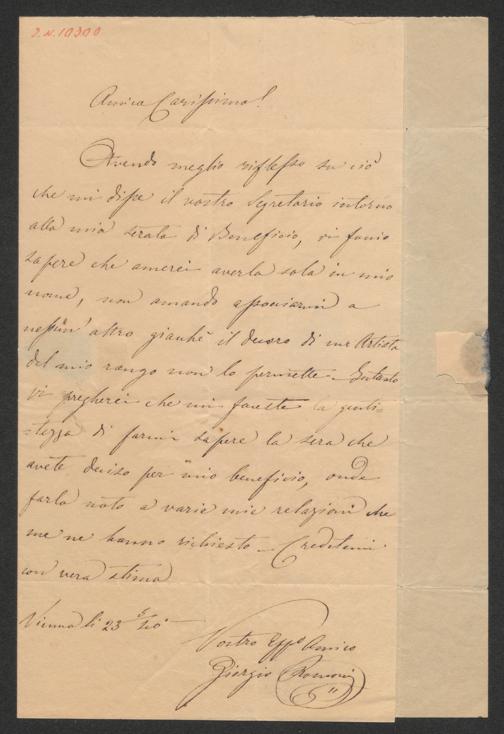 I.N. 10300
Amico Carissimo!
Avendo meglio riflesso su ciò
che mi disse il vostro Segretario intorno
alla mia serata di Beneficio, vi faccio
sapere che amerei averla sola in mio
nome, non amando associarmi a
nessun' altro giacchè il decoro di un Artista
del mio rango non lo permette. Intanto
vi pregherei che mi faceste la genti
=lezza di farmi sapere la sera che
avete deciso per mio beneficio, onde
farlo noto a varie mie relazioni che
me ne hanno richiesto. Credetemi
con vera stima
Vienna li 23
Vostro Affo Amico
Giorgio Ronconi